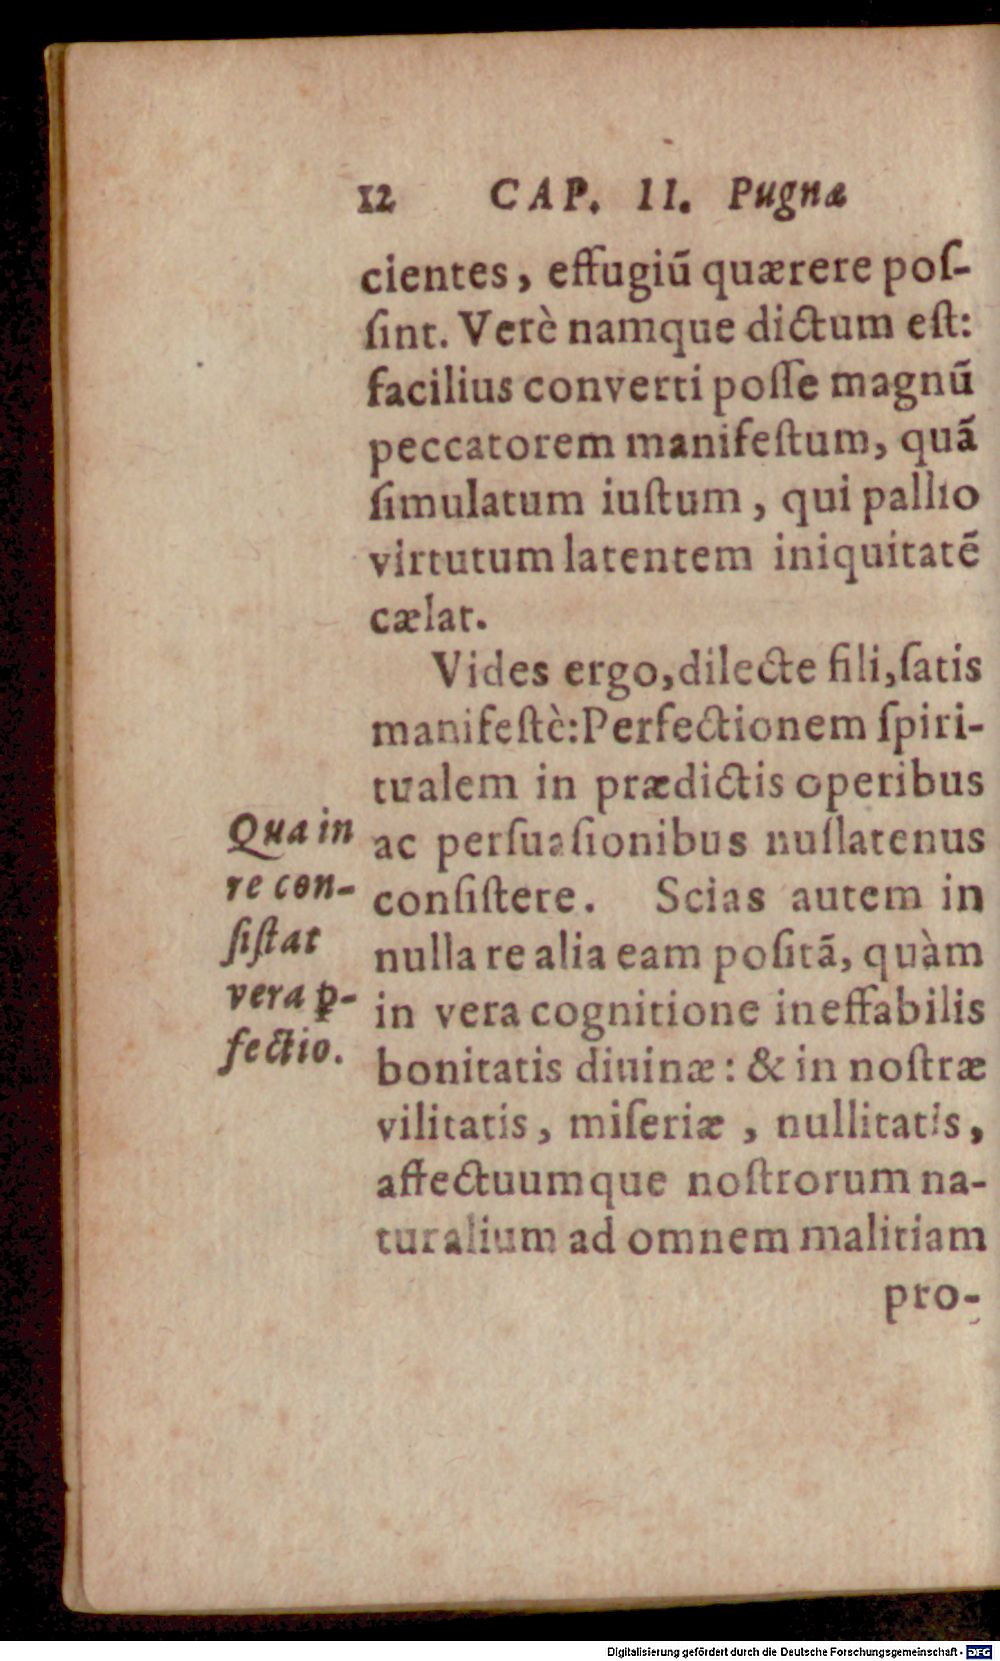 12 CAP. II. Pugnæ
cientes, effugiū quærere poſ-
ſint. Verè namque dictum eſt:
facilius converti poſſe magnū
peccatorem manifeſtum, quā
ſimulatum iuſtum, qui pallio
virtutum latentem iniquitatē
cælat.
Vides ergo, dilecte fili, ſatis
manifeſtè: Perfectionem ſpiri-
tualem in prædictis operibus
ac perſuaſionibus nullatenus
conſiſtere. Scias autem in
nulla re alia eam poſitā, quàm
in vera cognitione ineffabilis
bonitatis diuinæ: & in noſtræ
vilitatis, miſeriæ, nullitatis,
affectuumque noſtrorum na-
turalium ad omnem malitiam
pro-
Qua in
re con-
ſiſtat
vera ꝑ-
fectio.
Digitalisierung gefördert durch die Deutsche Forschungsgemeinschaft - DFG